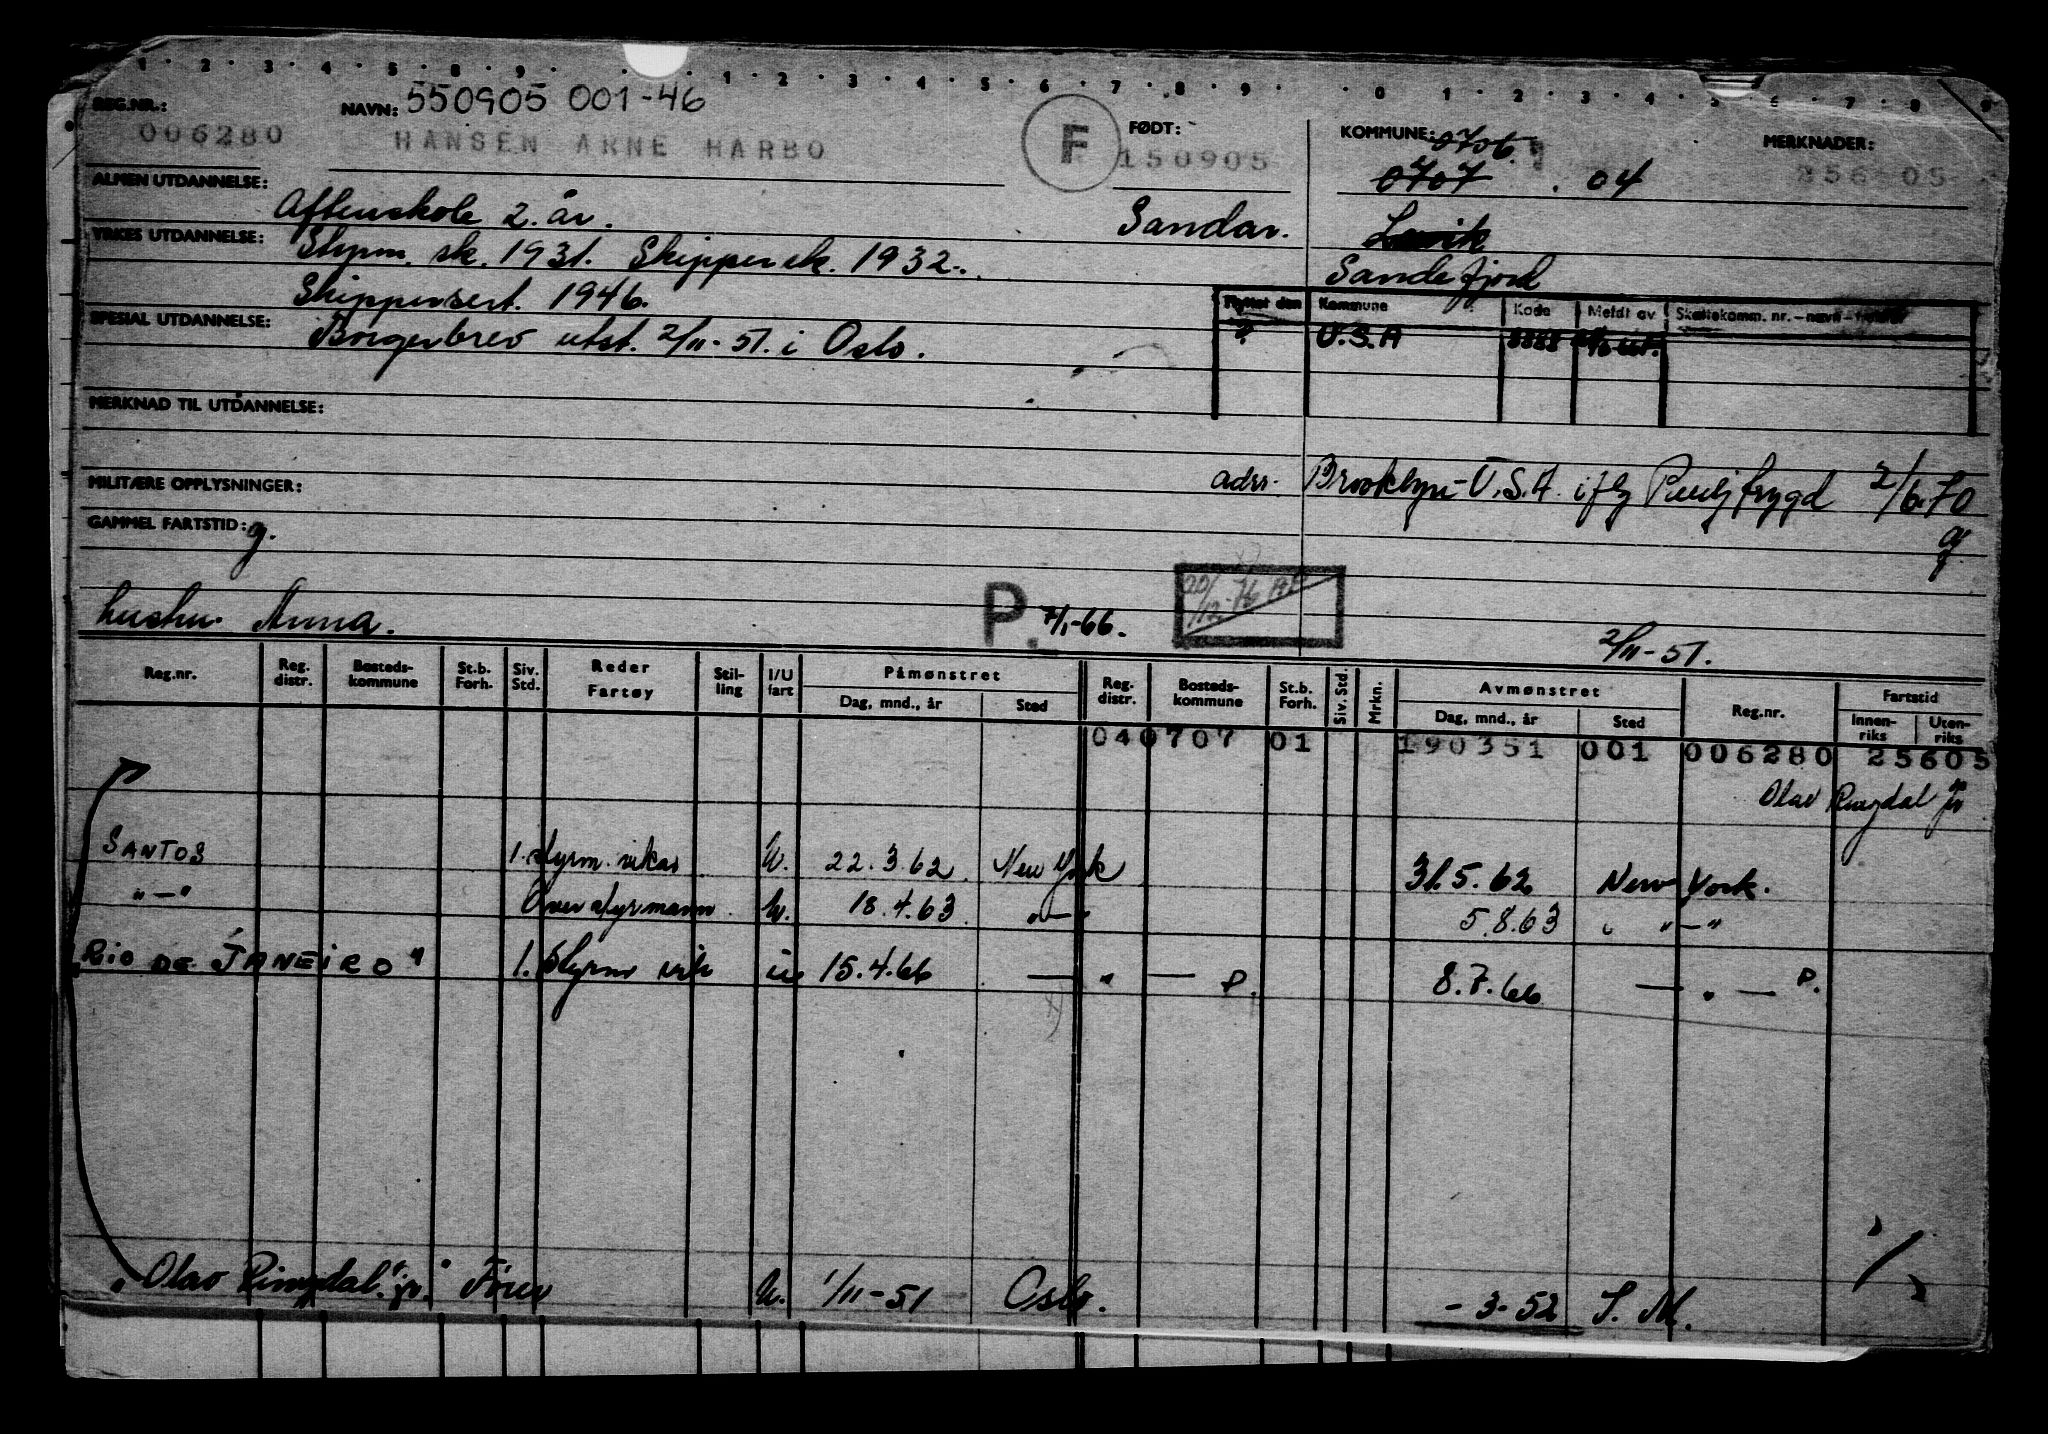 1 · 2 · 3 · 4 · 5 · 8 · 9 · · 1 · 2 · 3 · 4 · 5 · 6 · 7 · 8 · 9 · · 0 · 1 · 2 · 3 · 4 · 5 · 6 · 7 · 8 · 9
REG.NR.: NAVN: 550905 001-46 FØDT: KOMMUNE: 0706 MERKNADER:
006280 HANSEN ARNE HARBO F 150905 0707 . 04 256 05
ALMEN UTDANNELSE: Aftenskole 2. år. Sandar. Larvik
YRKES UTDANNELSE: Styrm. sk. 1931. Skippersk. 1932. Sandefjord
Skippersert. 1946.
Flyttet den Kommune Kode Meldt av Skattekomm. nr. – navn –
SPESIAL UTDANNELSE: Borgerbrev utst. 2/11-51. i Oslo. ? U.S.A
MERKNAD TIL UTDANNELSE:
MILITÆRE OPPLYSNINGER: adr. Brooklyn - U.S.A. iflg 2/6.70
GAMMEL FARTSTID: g. g.
hustru. Anna. P. 7/1-66. 20/12-76 2/11-51.
Reg.nr. Reg. distr. Bosteds-kommune St.b. Forh. Siv. Std. Reder Fartøy Stil-ling I/U fart Påmønstret Dag, mnd., år Sted Reg. distr. Bosteds-kommune St.b. Forh. Siv. Std. Mrkn. Avmønstret Dag, mnd., år Sted Reg.nr. Fartstid Innen-riks Uten-riks
04 0707 01 190351 001 006280 25605
Olav Ringdal jr
SANTOS 1. styrm. vikar U. 22.3.62 New York 31.5.62 New York.
"—" Overstyrmann U. 18.4.63 "—" 5.8.63 "—"
RIO DE JANEIRO" 1. Styrm vik u 15.4.66 — " — P. 8.7.66 — " — P.
"Olav Ringdal." jr." Fører U. 1/11-51 Oslo. - 3-52 S. M.